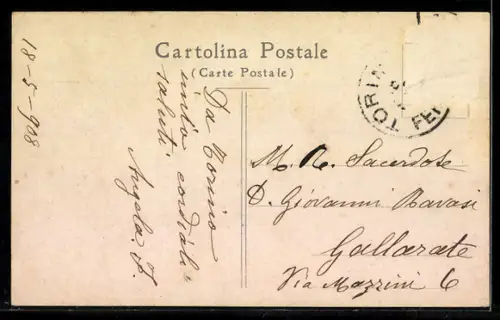 Cartolina Postale
(Carte Postale)
18-5-908
Da Torino
invio cordiali
saluti.
Angela. F.
TORIN
FER
M. R. Sacerdote
D. Giovanni Ravasi
Gallarate
Via Mazzini 6